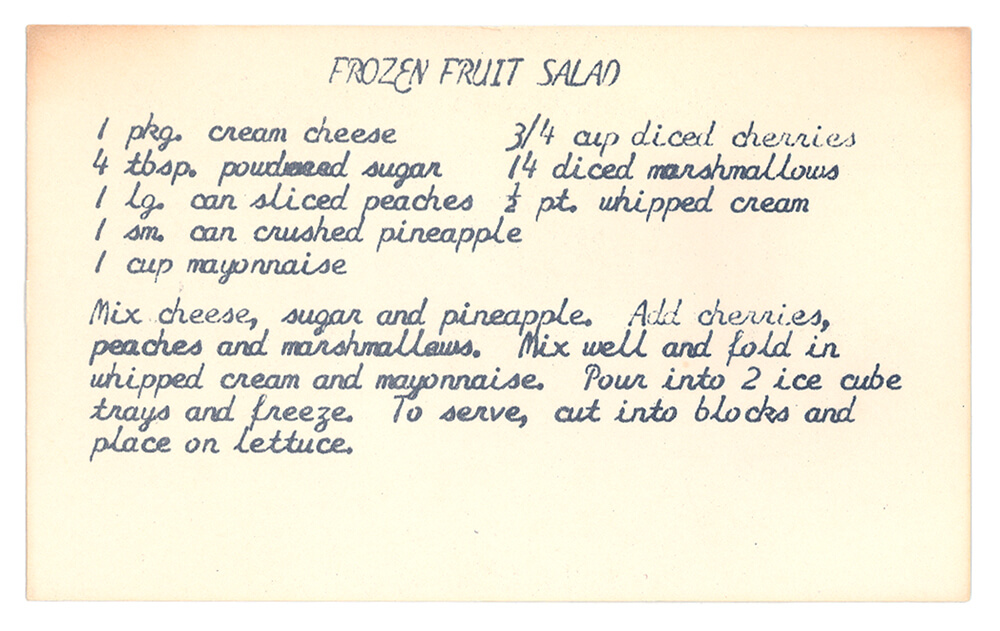 FROZEN FRUIT SALAD
1 pkg. cream cheese
4 tbsp. powdered sugar
1 lg. can sliced peaches
1 sm. can crushed pineapple
1 cup mayonnaise
3/4 cup diced cherries
14 diced marshmallows
½ pt. whipped cream
Mix cheese, sugar and pineapple. Add cherries,
peaches and marshmallows. Mix well and fold in
whipped cream and mayonnaise. Pour into 2 ice cube
trays and freeze. To serve, cut into blocks and
place on lettuce.